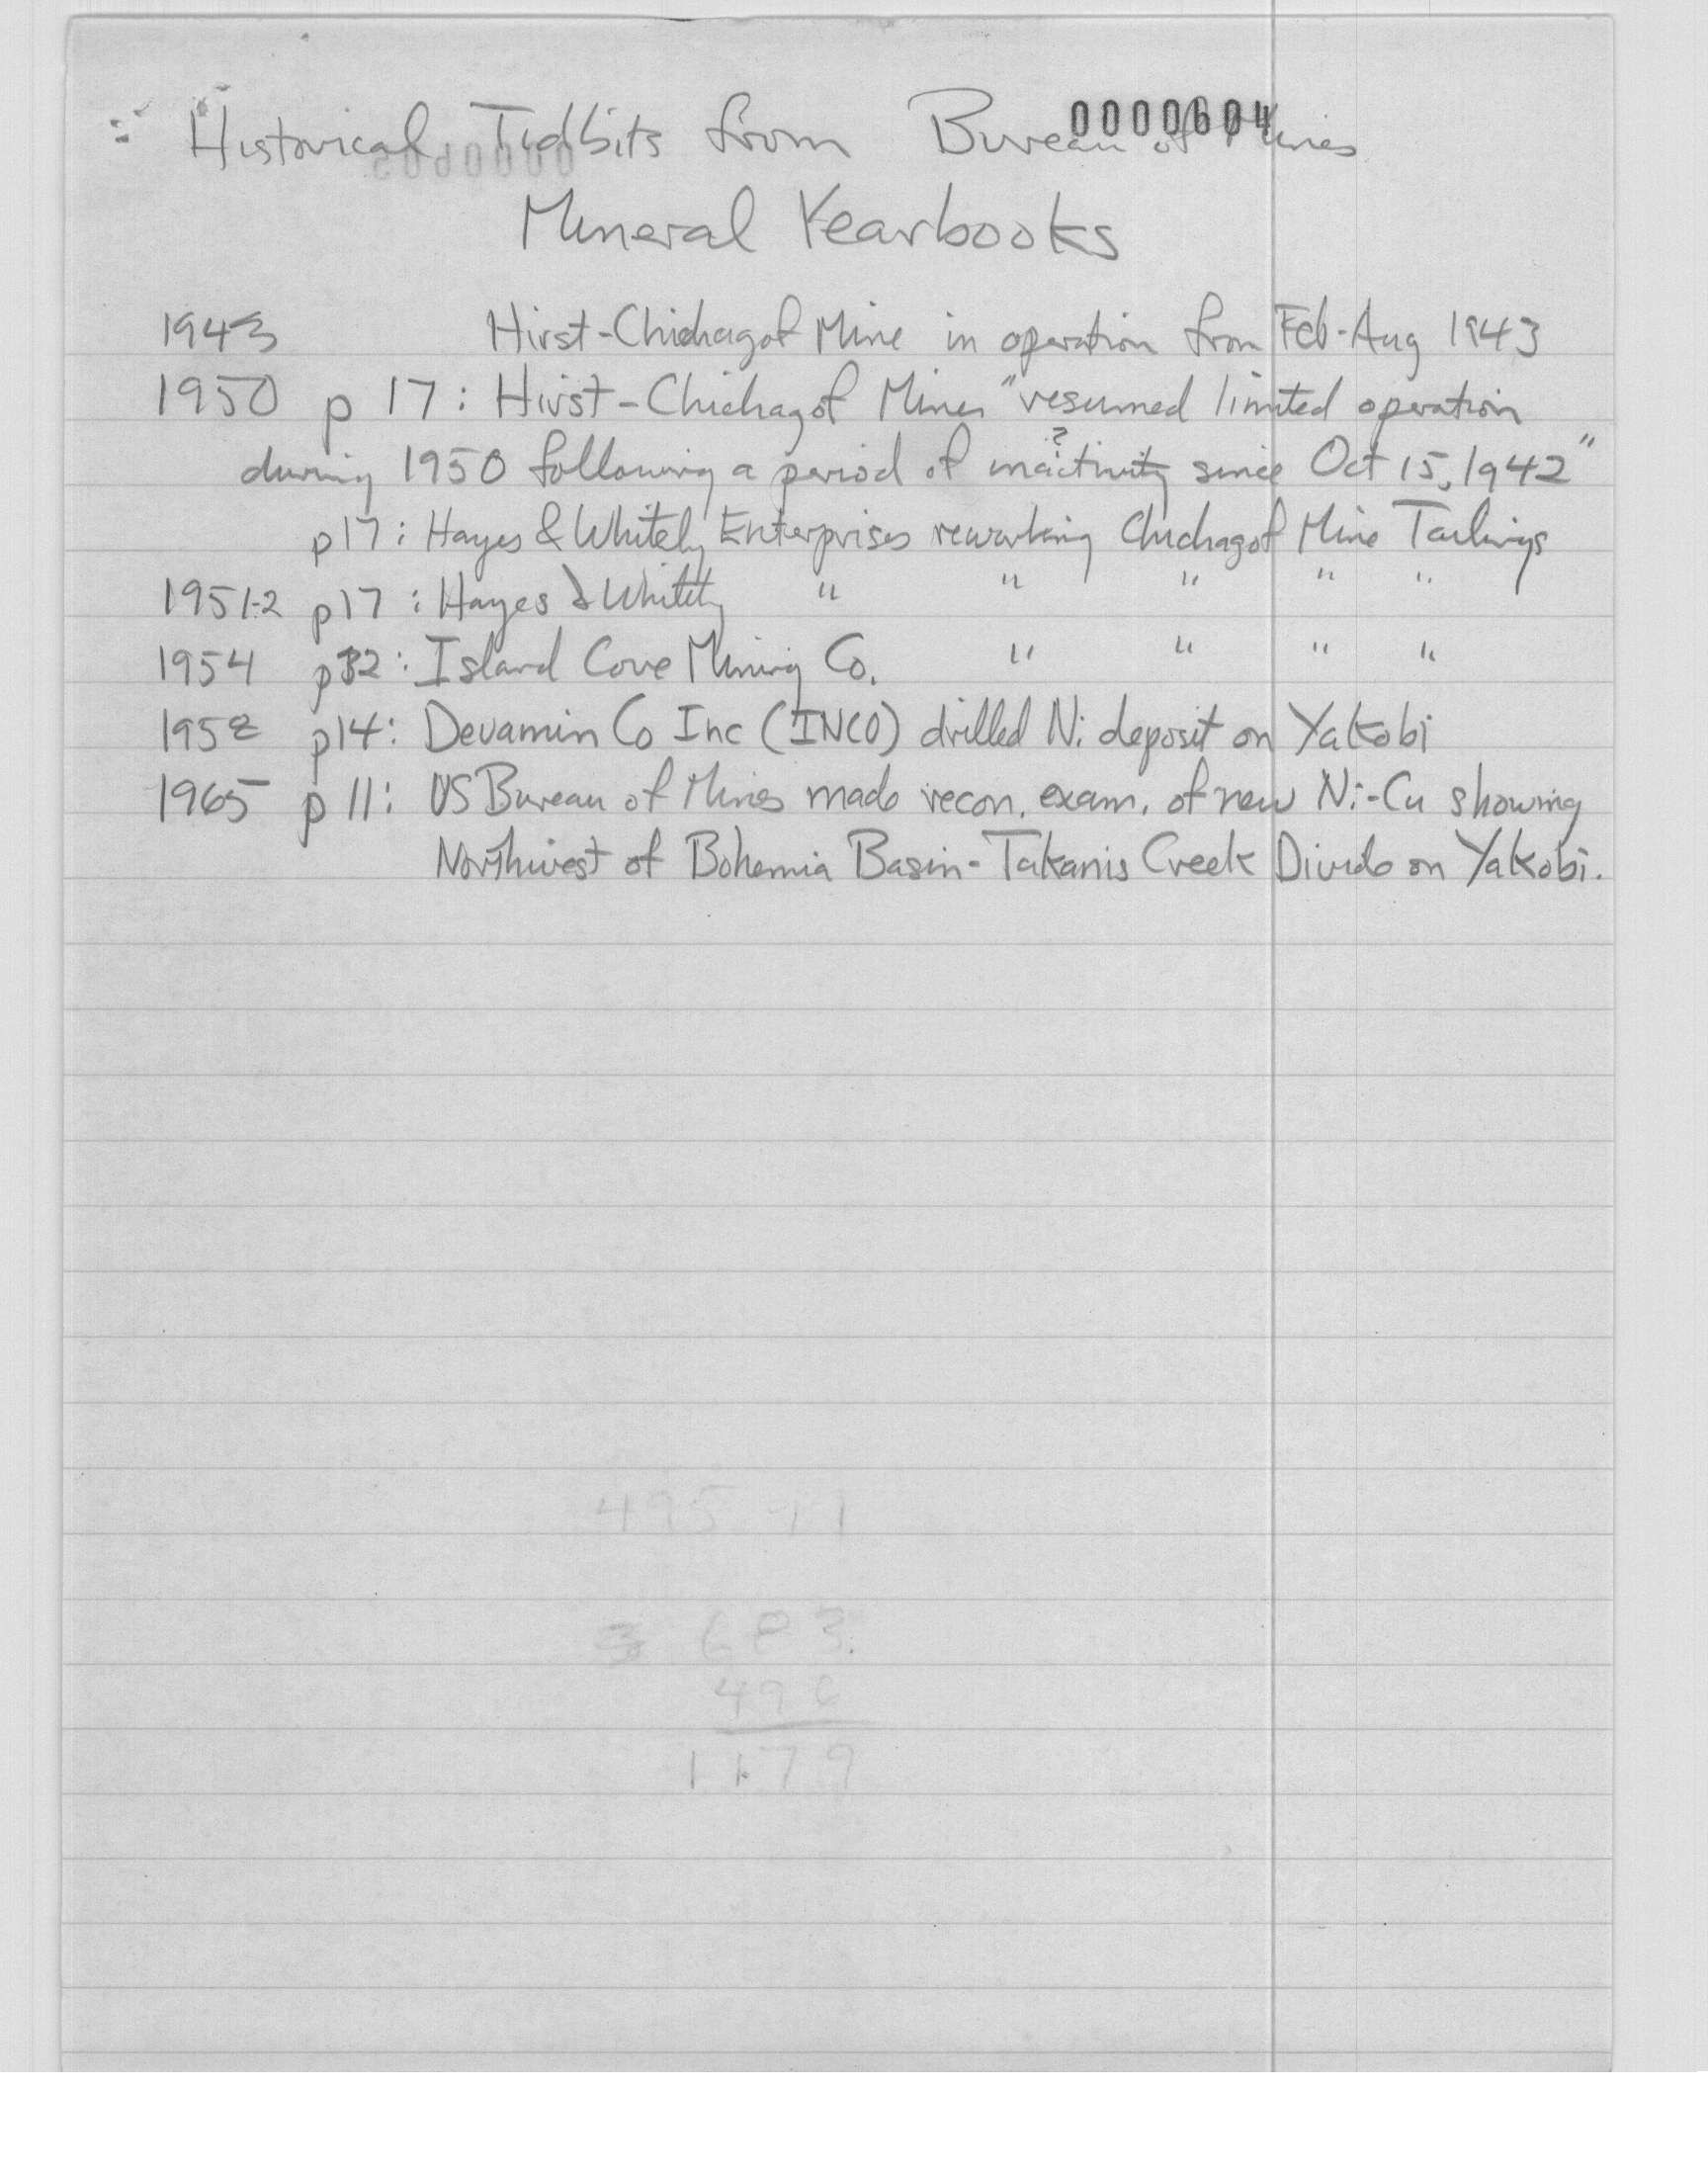 0000604
Historical Tidbits from Bureau of Mines
Mineral Yearbooks
1943 Hirst-Chichagof Mine in operation from Feb-Aug 1943
1950 p 17: Hirst-Chichagof Mines "resumed limited operation
?
during 1950 following a period of inactivity since Oct 15, 1942"
p17: Hayes & Whitely Enterprises reworking Chichagof Mine Tailings
1951-2 p17: Hayes & Whitely " " " " "
1954 p32: Island Cove Mining Co. " " " "
1958 p14: Devamin Co Inc (INCO) drilled Ni deposit on Yakobi
1965 p 11: US Bureau of Mines made recon. exam. of new Ni-Cu showing
Northwest of Bohemia Basin-Takanis Creek Divide on Yakobi.
495
683
1179